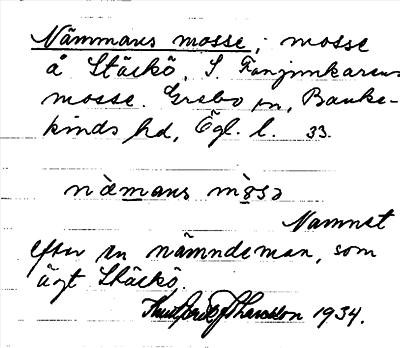 Nämmans mosse; mosse
å Stäckö, S. Fanjunkarens
mosse. Grebo sn, Banke-
kinds hd, Ögl. l. 33.
nämans mosə
Namnet
efter en nämndeman, som
ägt Stäckö.
1934.